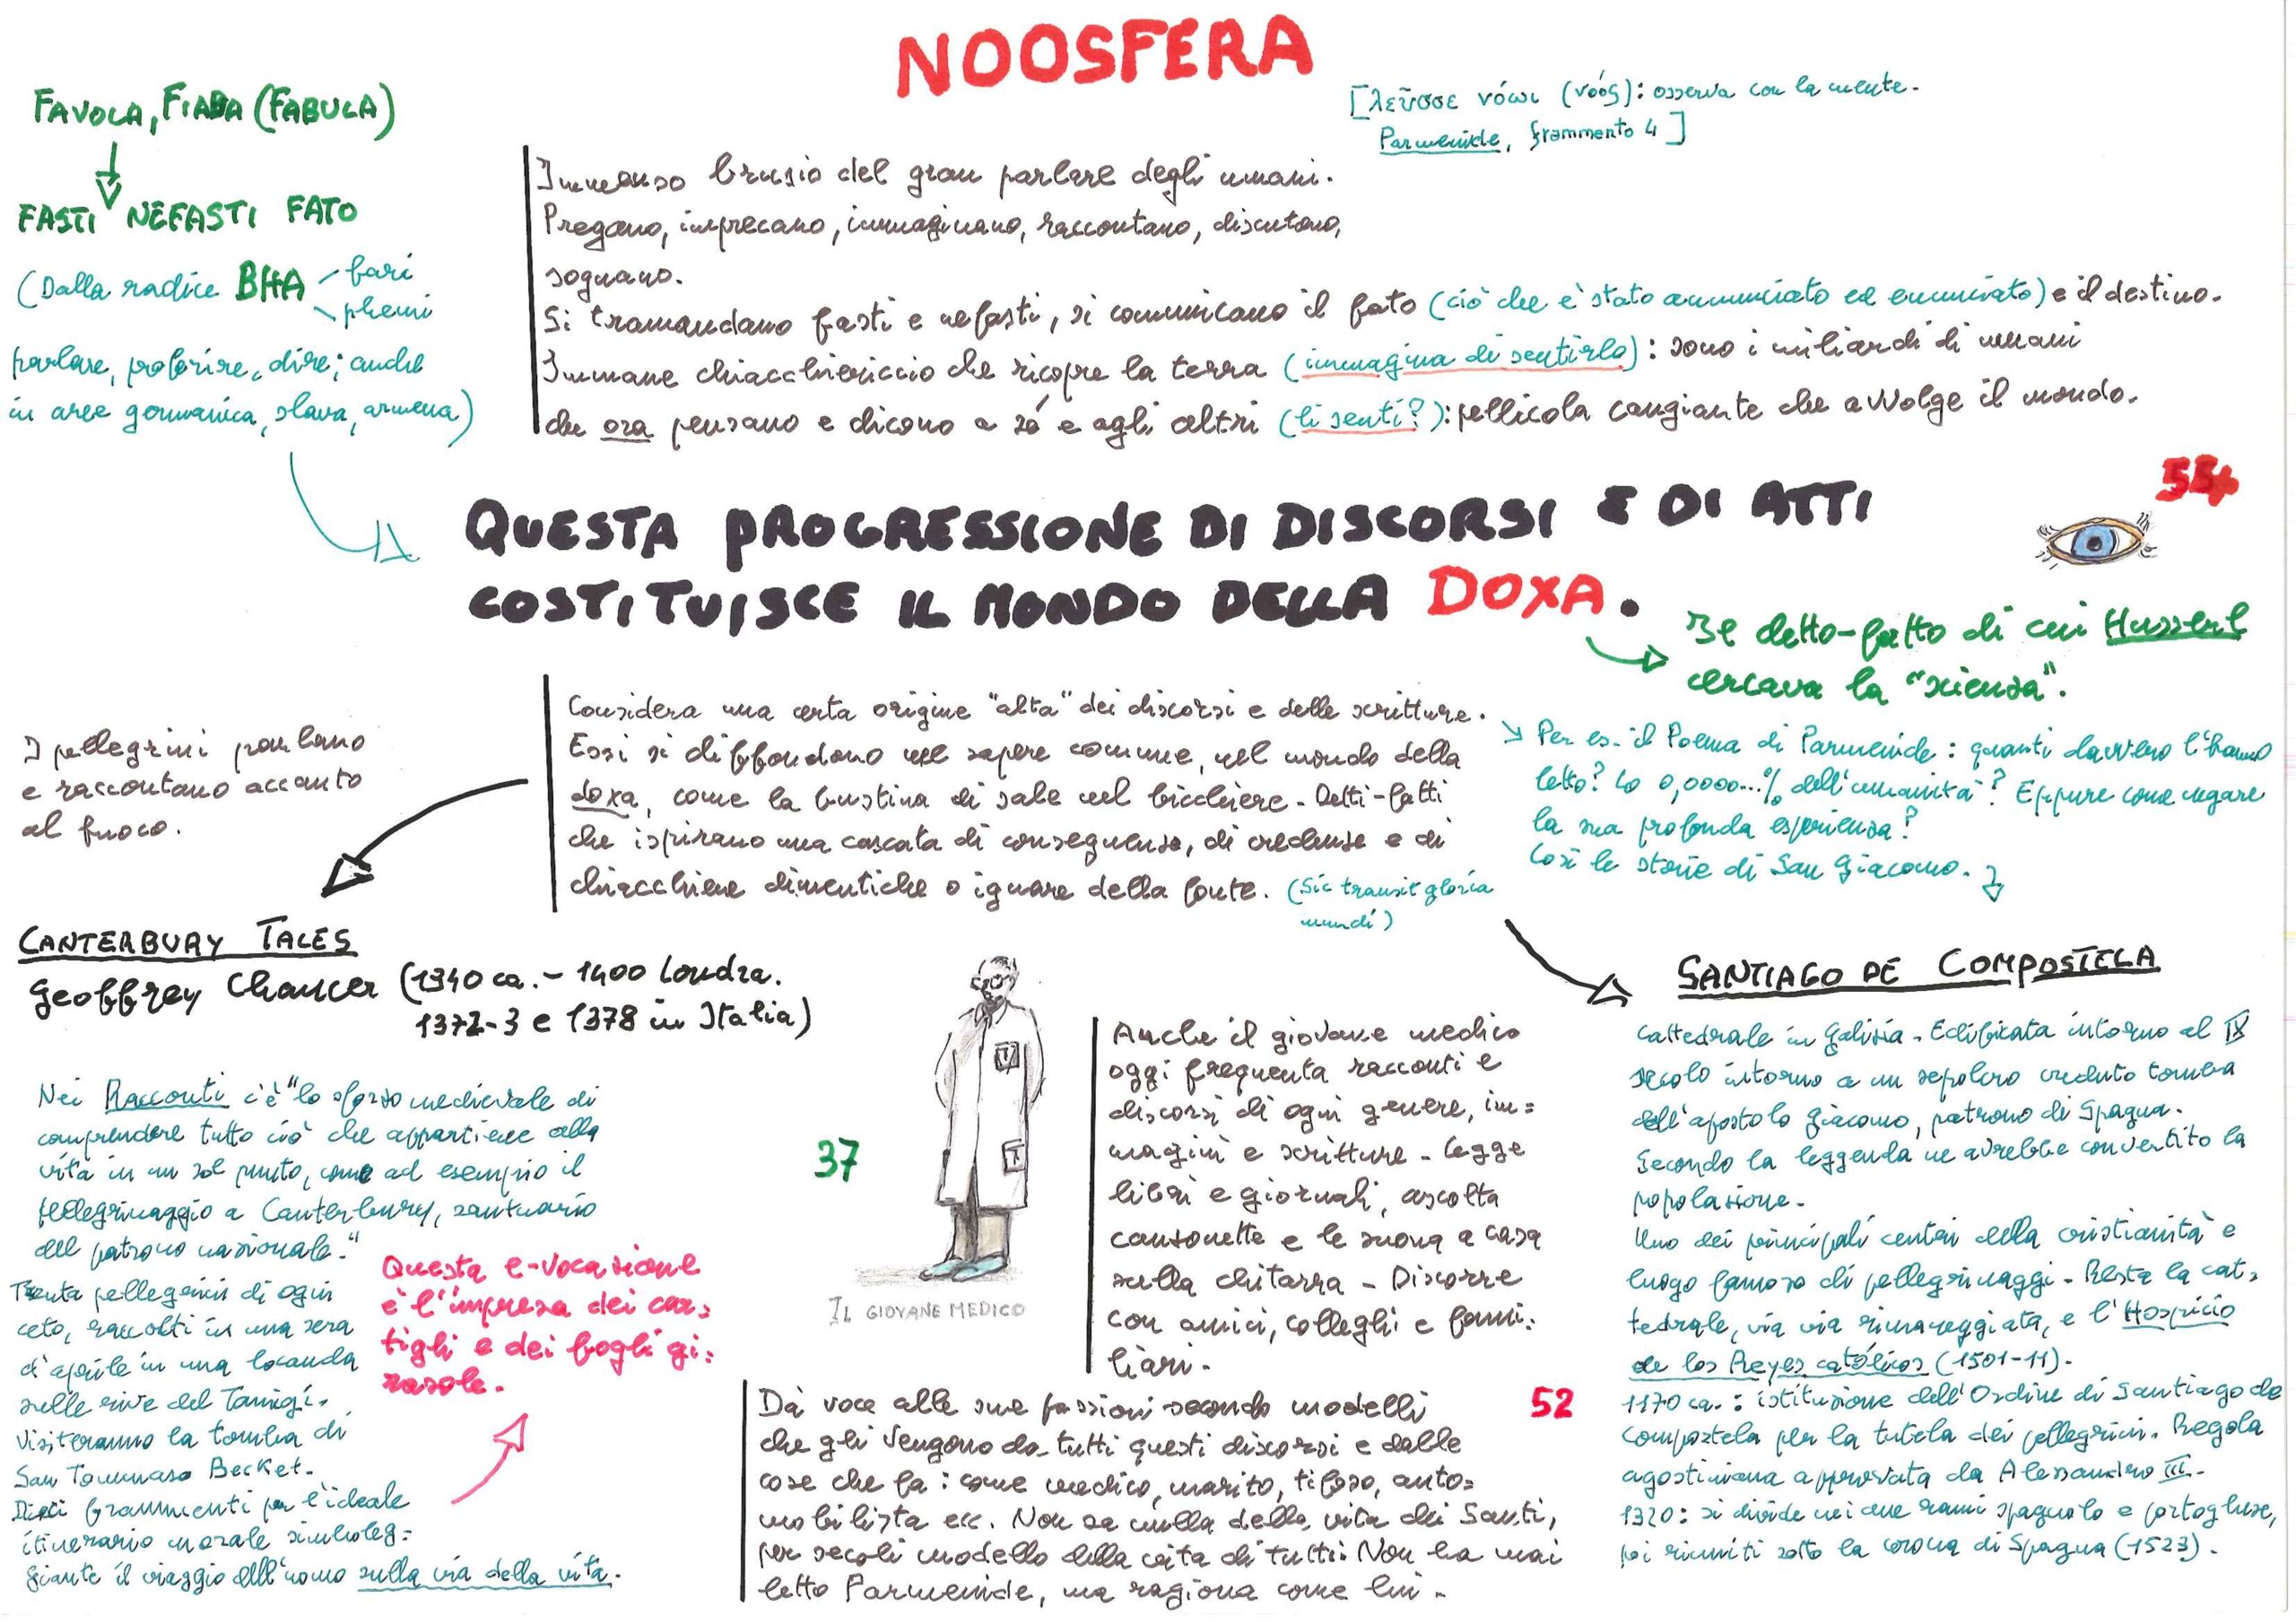 NOOSFERA
[λεῦσσε νόωι (νοός): osserva con la mente.
Parmenide, frammento 4]
FAVOLA, FIABA (FABULA)
FASTI NEFASTI FATO
(Dalla radice BHA fari
phemi
parlare, proferire, dire; anche
in aree germanica, slava, armena)
Immenso brusio del gran parlare degli umani.
Pregano, imprecano, immaginano, raccontano, discutono,
sognano.
Si tramandano fasti e nefasti, si comunicano il fato (ciò che è stato annunciato ed enunciato) e il destino.
Immane chiacchiericcio che ricopre la terra (immagina di sentirlo): sono i miliardi di umani
che ora pensano e dicono a sé e agli altri (li senti?): pellicola cangiante che avvolge il mondo.
QUESTA PROGRESSIONE DI DISCORSI E DI ATTI
COSTITUISCE IL MONDO DELLA DOXA.
Il detto-fatto di cui Husserl
cercava la "scienza".
Considera una certa origine "alta" dei discorsi e delle scritture.
Essi si diffondono nel sapere comune, nel mondo della
doxa, come la bustina di sale nel bicchiere. Detti-fatti
che ispirano una cascata di conseguenze, di credenze e di
chiacchiere dimentiche o ignare della fonte. (Sic transit gloria
mundi)
Per es. il Poema di Parmenide: quanti davvero l'hanno
letto? Lo 0,0000...% dell'umanità? Eppure come negare
la sua profonda esperienza?
Così le storie di San Giacomo.
I pellegrini parlano
e raccontano accanto
al fuoco.
CANTERBURY TALES
Geoffrey Chaucer (1340 ca. - 1400 Londra.
1372-3 e 1378 in Italia)
Nei Racconti c'è "lo sforzo medievale di
comprendere tutto ciò che appartiene alla
vita in un sol punto, come ad esempio il
pellegrinaggio a Canterbury, santuario
del patrono nazionale."
Trenta pellegrini di ogni
ceto, raccolti in una sera
d'aprile in una locanda
sulle rive del Tamigi.
Visiteranno la tomba di
San Tommaso Becket.
Dieci frammenti per l'ideale
itinerario morale simboleg=
giante il viaggio dell'uomo sulla via della vita.
Questa e-vocazione
è l'impresa dei car=
tigli e dei fogli gi=
rasole.
37
IL GIOVANE MEDICO
Anche il giovane medico
oggi frequenta racconti e
discorsi di ogni genere, im=
magini e scritture. Legge
libri e giornali, ascolta
canzonette e le suona a casa
sulla chitarra. Discorre
con amici, colleghi e fami=
liari.
52
Dà voce alle sue passioni secondo modelli
che gli vengono da tutti questi discorsi e dalle
cose che fa: come medico, marito, tifoso, auto=
mobilista ecc. Non sa nulla della vita dei Santi,
per secoli modello della vita di tutti. Non ha mai
letto Parmenide, ma ragiona come lui.
SANTIAGO DE COMPOSTELA
Cattedrale in Galizia. Edificata intorno al IX
secolo intorno a un sepolcro creduto tomba
dell'apostolo Giacomo, patrono di Spagna.
Secondo la leggenda ne avrebbe convertito la
popolazione.
Uno dei principali centri della cristianità e
luogo famoso di pellegrinaggi. Resta la cat=
tedrale, via via rimaneggiata, e l'Hospicio
de los Reyes católicos (1501-11).
1170 ca.: istituzione dell'Ordine di Santiago de
Compostela per la tutela dei pellegrini. Regola
agostiniana approvata da Alessandro III.
1320: si divide nei due rami spagnolo e portoghese,
poi riuniti sotto la corona di Spagna (1523).